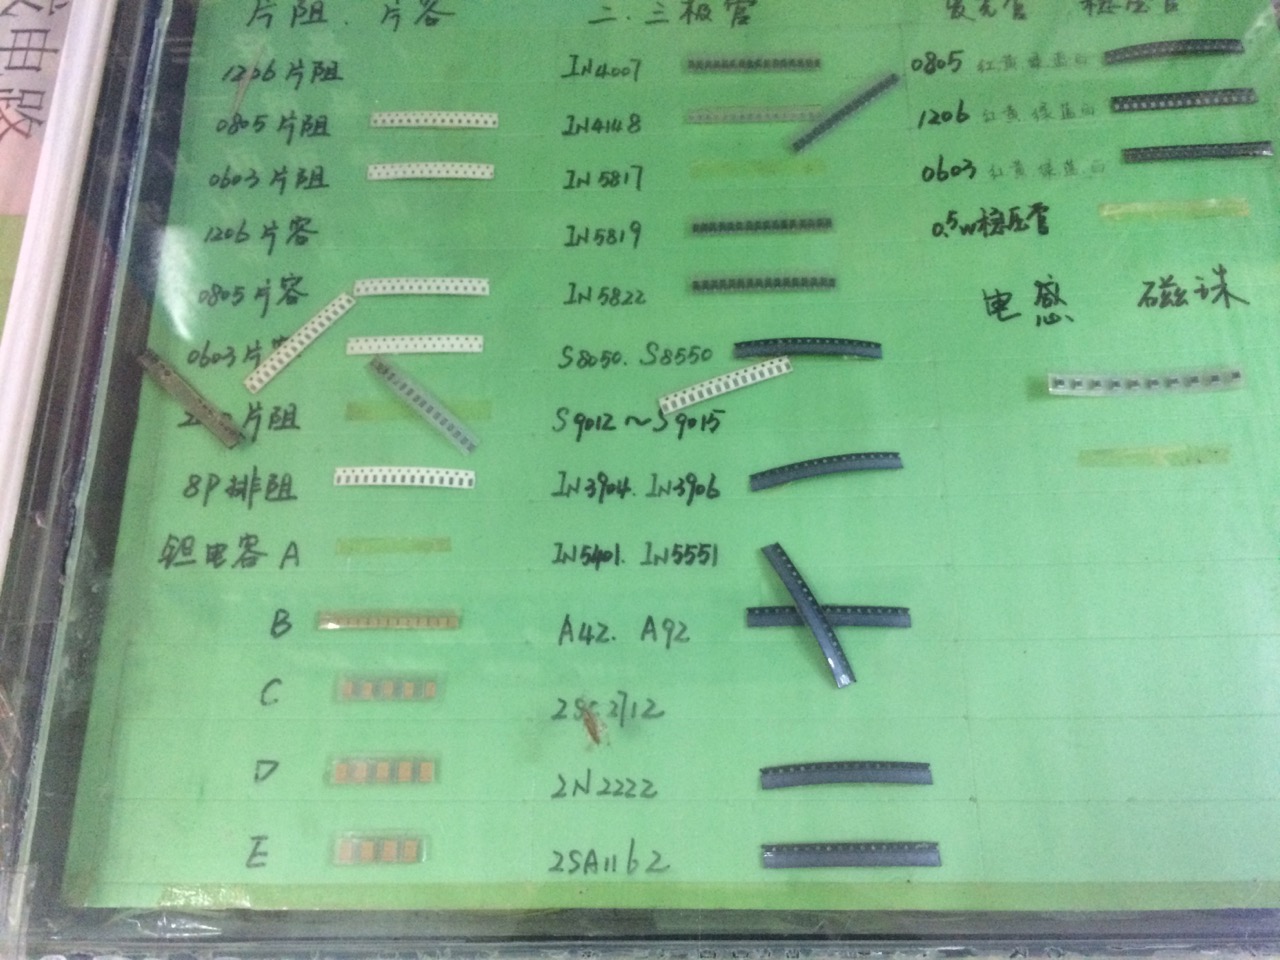 片阻. 片容
1206片阻
0805片阻
0603片阻
1206片容
0805片容
0603片
片阻
8P排阻
钽电容 A
B
C
D
E
二.三极管
IN4007
IN4148
IN5817
IN5819
IN5822
S8050. S8550
S9012～S9015
IN3904. IN3906
IN5401. IN5551
A42. A92
2SC2712
2N2222
2SA1162
发光管 稳压管
0805 红黄绿蓝白
1206 红黄绿蓝白
0603 红黄绿蓝白
0.5W稳压管
电感 磁珠
电路